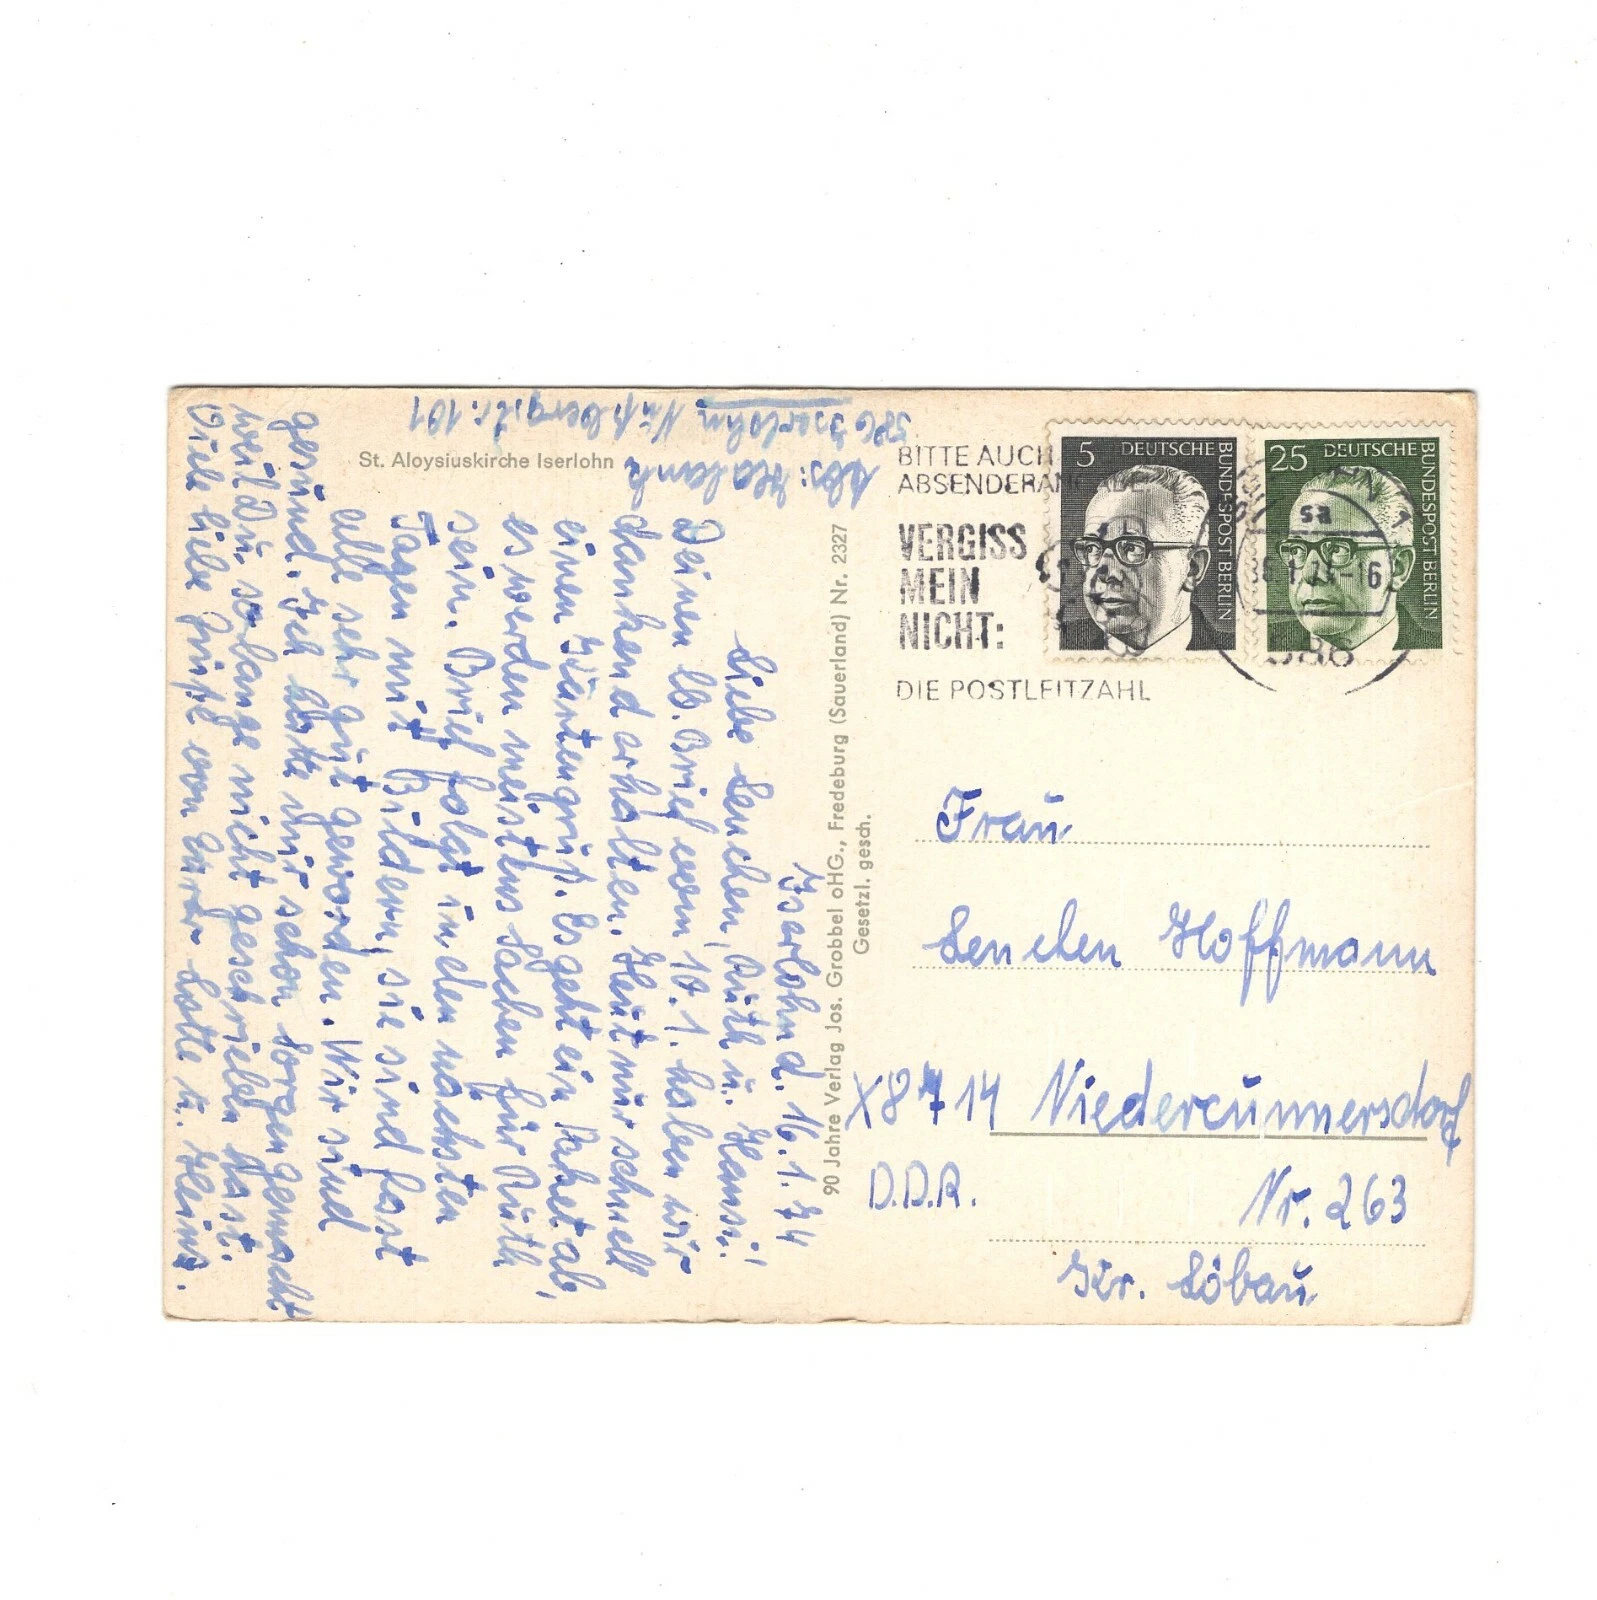 St. Aloysiuskirche Iserlohn
586 Iserlohn
Iserlohn d. 16.1.74
Liebe Lenchen, Ruth u. Hansi!
Deinen lb. Brief vom 10.1. haben wir
dankend erhalten. Heut nur schnell
einen Kartengruß. Es geht ein Paket ab,
es werden meistens Sachen für Ruth
sein. Brief folgt in den nächsten
Tagen mit Bildern, sie sind fast
alle sehr gut geworden. Wir sind
gesund. Ich hatte mir schon Sorgen gemacht
weil Du so lange nicht geschrieben hast.
Viele liebe Grüße von Eurer Lotte u. Heinz.
90 Jahre Verlag Jos. Grobbel oHG., Fredeburg (Sauerland) Nr. 2327
Gesetzl. gesch.
BITTE AUCH
VERGISS
MEIN
NICHT:
DIE POSTLEITZAHL
5 DEUTSCHE BUNDESPOST BERLIN
25 DEUTSCHE BUNDESPOST BERLIN
sa
-16
Frau
Lenchen Hoffmann
X8714 Niedercunnersdorf
D.D.R. Nr. 263
Kr. Löbau